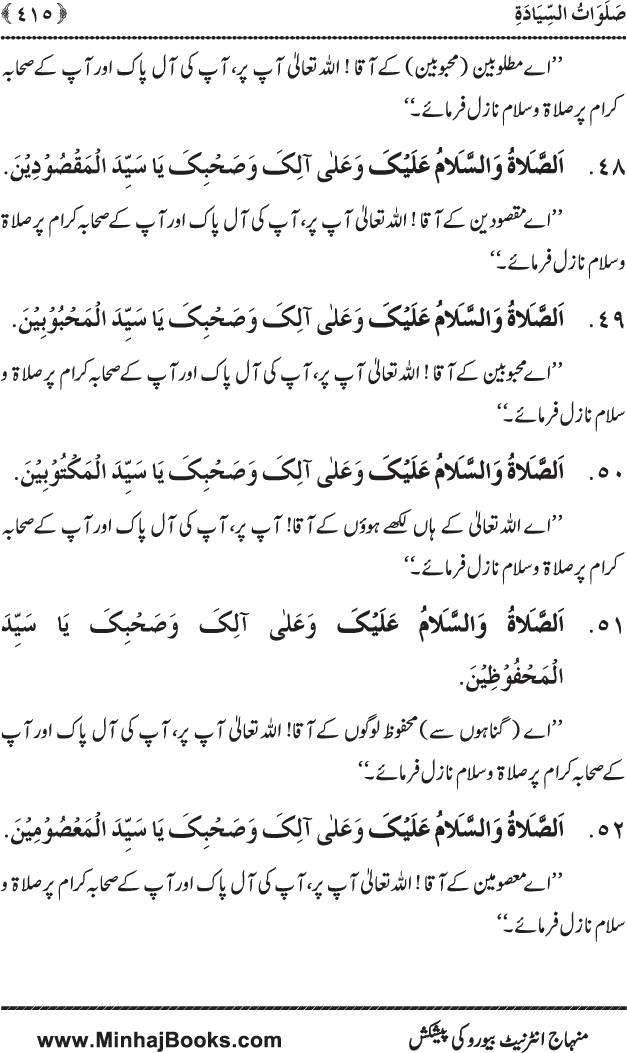 صَلَوَاتُ السِّیَادَةِ ﴿٤١٥﴾
’’اے مطلوبین (محبوبین) کے آقا! اللہ تعالیٰ آپ پر، آپ کی آل پاک اور آپ کے صحابہ
کرام پر صلاۃ و سلام نازل فرمائے۔‘‘
٤٨. اَلصَّلَاةُ وَالسَّلَامُ عَلَیْکَ وَعَلٰی آلِکَ وَصَحْبِکَ یَا سَیِّدَ الْمَقْصُوْدِیْنَ.
’’اے مقصودین کے آقا! اللہ تعالیٰ آپ پر، آپ کی آل پاک اور آپ کے صحابہ کرام پر صلاۃ
و سلام نازل فرمائے۔‘‘
٤٩. اَلصَّلَاةُ وَالسَّلَامُ عَلَیْکَ وَعَلٰی آلِکَ وَصَحْبِکَ یَا سَیِّدَ الْمَحْبُوْبِیْنَ.
’’اے محبوبین کے آقا! اللہ تعالیٰ آپ پر، آپ کی آل پاک اور آپ کے صحابہ کرام پر صلاۃ و
سلام نازل فرمائے۔‘‘
٥٠. اَلصَّلَاةُ وَالسَّلَامُ عَلَیْکَ وَعَلٰی آلِکَ وَصَحْبِکَ یَا سَیِّدَ الْمَکْتُوْبِیْنَ.
’’اے اللہ تعالیٰ کے ہاں لکھے ہوؤں کے آقا! آپ پر، آپ کی آل پاک اور آپ کے صحابہ
کرام پر صلاۃ و سلام نازل فرمائے۔‘‘
٥١. اَلصَّلَاةُ وَالسَّلَامُ عَلَیْکَ وَعَلٰی آلِکَ وَصَحْبِکَ یَا سَیِّدَ
الْمَحْفُوْظِیْنَ.
’’اے (گناہوں سے) محفوظ لوگوں کے آقا! اللہ تعالیٰ آپ پر، آپ کی آل پاک اور آپ
کے صحابہ کرام پر صلاۃ و سلام نازل فرمائے۔‘‘
٥٢. اَلصَّلَاةُ وَالسَّلَامُ عَلَیْکَ وَعَلٰی آلِکَ وَصَحْبِکَ یَا سَیِّدَ الْمَعْصُوْمِیْنَ.
’’اے معصومین کے آقا! اللہ تعالیٰ آپ پر، آپ کی آل پاک اور آپ کے صحابہ کرام پر صلاۃ و
سلام نازل فرمائے۔‘‘
منہاج انٹرنیٹ بیورو کی پیشکش www.MinhajBooks.com